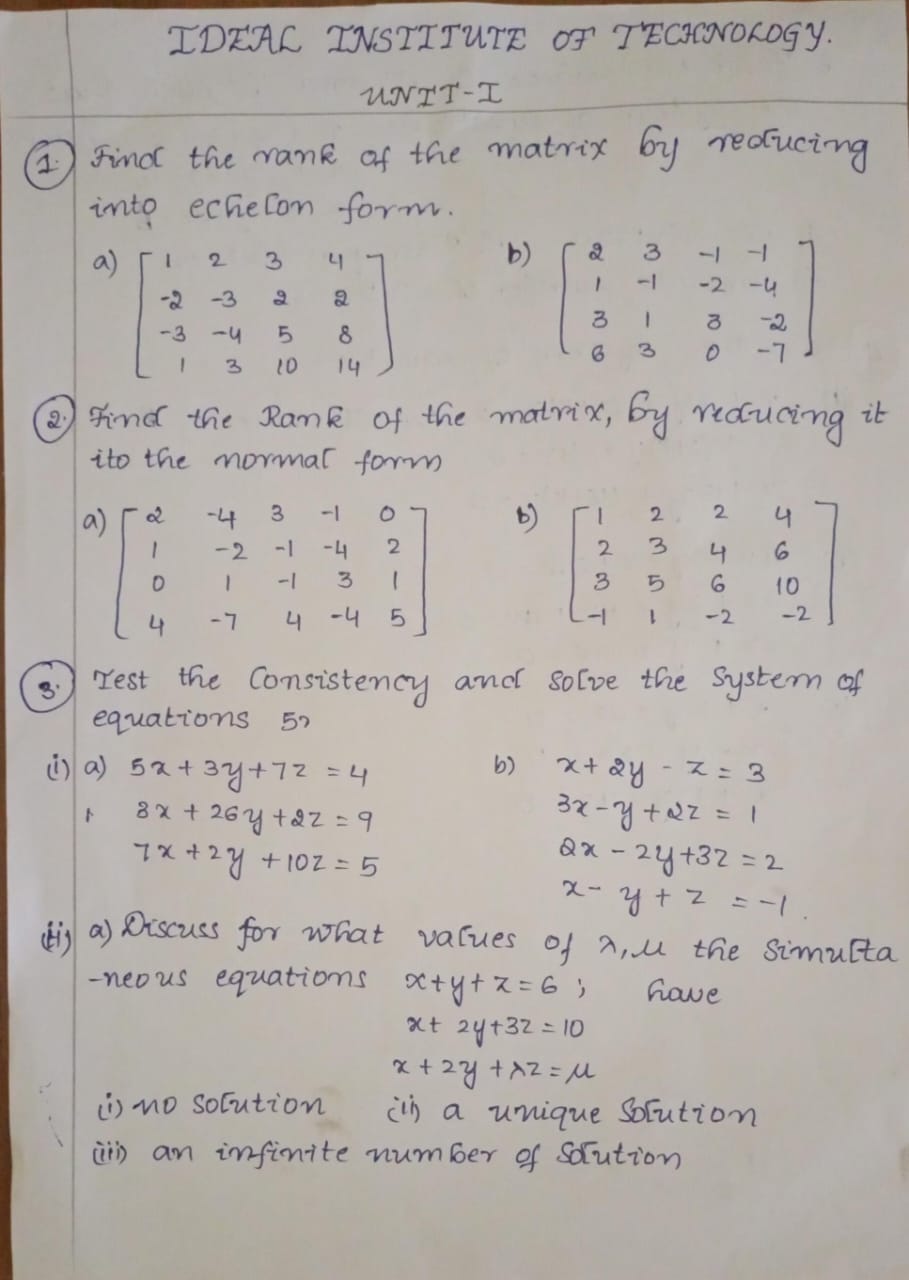 IDEAL INSTITUTE OF TECHNOLOGY.
UNIT-I
1. Find the rank of the matrix by reducing
into echelon form.
a) [ 1 2 3 4
-2 -3 2 2
-3 -4 5 8
1 3 10 14 ]
b) [ 2 3 -1 -1
1 -1 -2 -4
3 1 3 -2
6 3 0 -7 ]
2. Find the Rank of the matrix, by reducing it
ito the normal form
a) [ 2 -4 3 -1 0
1 -2 -1 -4 2
0 1 -1 3 1
4 -7 4 -4 5 ]
b) [ 1 2 2 4
2 3 4 6
3 5 6 10
-1 1 -2 -2 ]
3. Test the Consistency and solve the System of
equations
(i) a) 5x + 3y + 7z = 4
3x + 26y + 2z = 9
7x + 2y + 10z = 5
b) x + 2y - z = 3
3x - y + 2z = 1
2x - 2y + 3z = 2
x - y + z = -1.
(ii) a) Discuss for what values of λ, μ the Simulta
-neous equations x+y+z=6 ; have
x+ 2y+3z = 10
x + 2y + λz = μ
(i) no solution (ii) a unique Solution
(iii) an infinite number of Solution